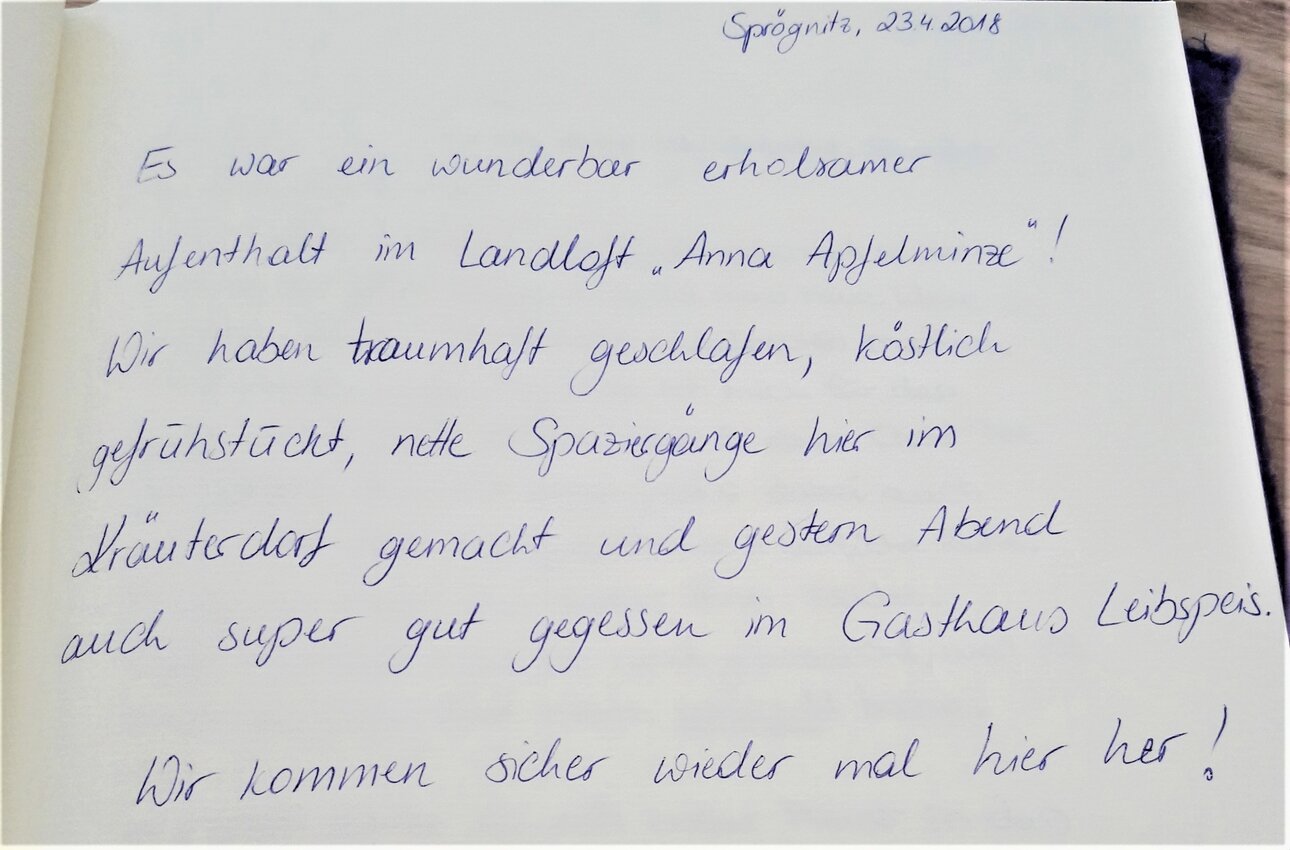 Sprögnitz, 23.4.2018
Es war ein wunderbar erholsamer
Aufenthalt im Landloft „Anna Apfelminze"!
Wir haben traumhaft geschlafen, köstlich
gefrühstückt, nette Spaziergänge hier im
Kräuterdorf gemacht und gestern Abend
auch super gut gegessen im Gasthaus Leibspeis.
Wir kommen sicher wieder mal hier her!